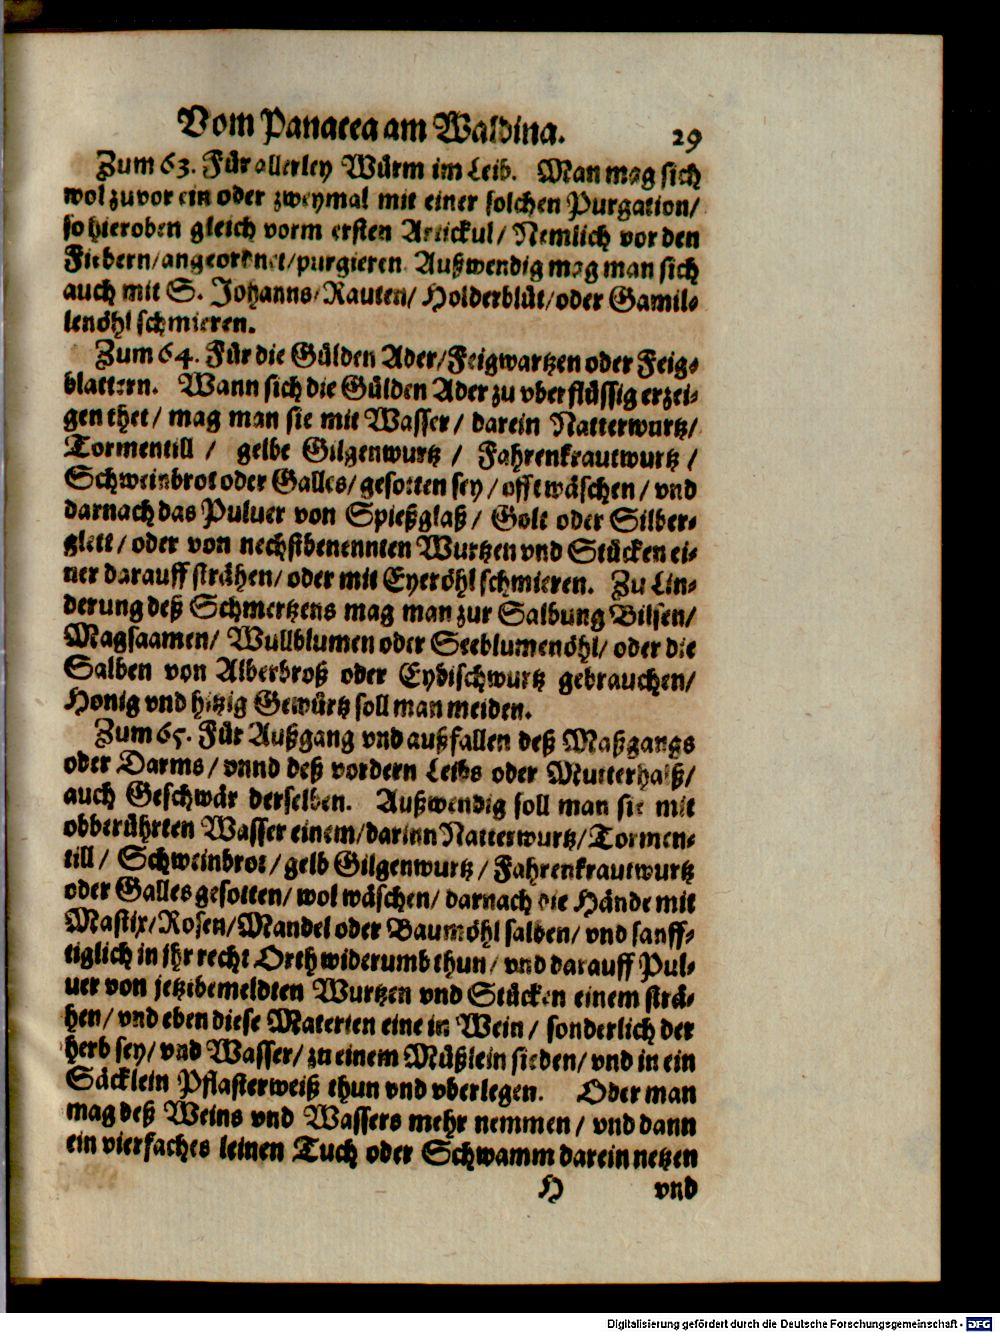 Vom Panacea am Waldina. 29
Zum 63. Für allerley Würm im Leib. Man mag sich
wol zuvor ein oder zweymal mit einer solchen Purgation/
so hieroben gleich vorm ersten Artickul/ Nemlich vor den
Fiebern/ angeordnet/ purgieren. Außwendig mag man sich
auch mit S. Johanns/ Rauten/ Holderblüt/ oder Gamil-
lenöhl schmieren.
Zum 64. Für die Gülden Ader/ Feigwartzen oder Feig-
blattern. Wann sich die Gülden Ader zu vberflüssig erzei-
gen thet/ mag man sie mit Wasser/ darein Natterwurtz/
Tormentill/ gelbe Gilgenwurtz/ Fahrenkrautwurtz/
Schweinbrot oder Galles/ gesotten sey/ offt wäschen/ vnd
darnach das Puluer von Spießglaß/ Golt oder Silber-
glett/ oder von nechstbenennten Wurtzen vnd Stücken ei-
ner darauff strähen/ oder mit Eyeröhl schmieren. Zu Lin-
derung deß Schmertzens mag man zur Salbung Bilsen/
Magsaamen/ Wullblumen oder Seeblumenöhl/ oder die
Salben von Alberbroß oder Eydischwurtz gebrauchen/
Honig vnd hitzig Gewürtz soll man meiden.
Zum 65. Für Außgang vnd außfallen deß Maßgangs
oder Darms/ vnnd deß vordern Leibs oder Mutterhalß/
auch Geschwär derselben. Außwendig soll man sie mit
obberührten Wasser einem/ darinn Natterwurtz/ Tormen-
till/ Schweinbrot/ gelb Gilgenwurtz/ Fahrenkrautwurtz
oder Galles gesotten/ wol wäschen/ darnach die Hände mit
Mastix/ Rosen/ Mandel oder Baumöhl salben/ vnd sanff-
tiglich in ihr recht Orth widerumb thun/ vnd darauff Pul-
uer von jetztbemeldten Wurtzen vnd Stücken einem strä-
hen/ vnd eben diese Materien eine in Wein/ sonderlich der
herb sey/ vnd Wasser/ zu einem Müßlein sieden/ vnd in ein
Säcklein Pflasterweiß thun vnd vberlegen. Oder man
mag deß Weins vnd Wassers mehr nemmen/ vnd dann
ein vierfaches leinen Tuch oder Schwamm darein netzen
H vnd
Digitalisierung gefördert durch die Deutsche Forschungsgemeinschaft - DFG